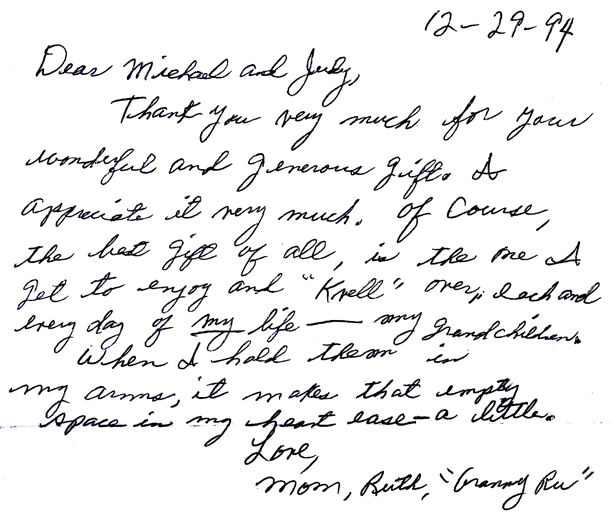 12-29-94
Dear Michael and Judy,
Thank you very much for your
wonderful and generous gift. I
appreciate it very much. Of Course,
the best gift of all, is the one I
get to enjoy and "Kvell" over, each and
every day of my life — my grandchildren.
When I hold them in
my arms, it makes that empty
space in my heart ease - a little.
Love,
Mom, Ruth, "Granny Ru"